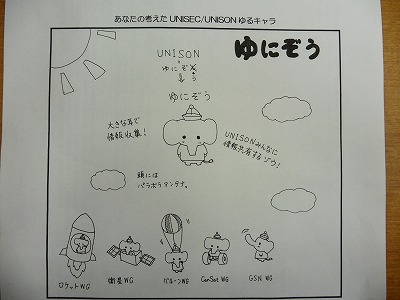 あなたの考えた UNISEC/UNISON ゆるキャラ
ゆにぞう
UNISON
ゆにぞん
う
ゆにぞう
大きな耳で
情報収集！
UNISONみんなに
情報共有するゾウ！
頭には
パラボラアンテナ。
ロケットWG
衛星WG
バルーンWG
CanSat WG
GSN WG